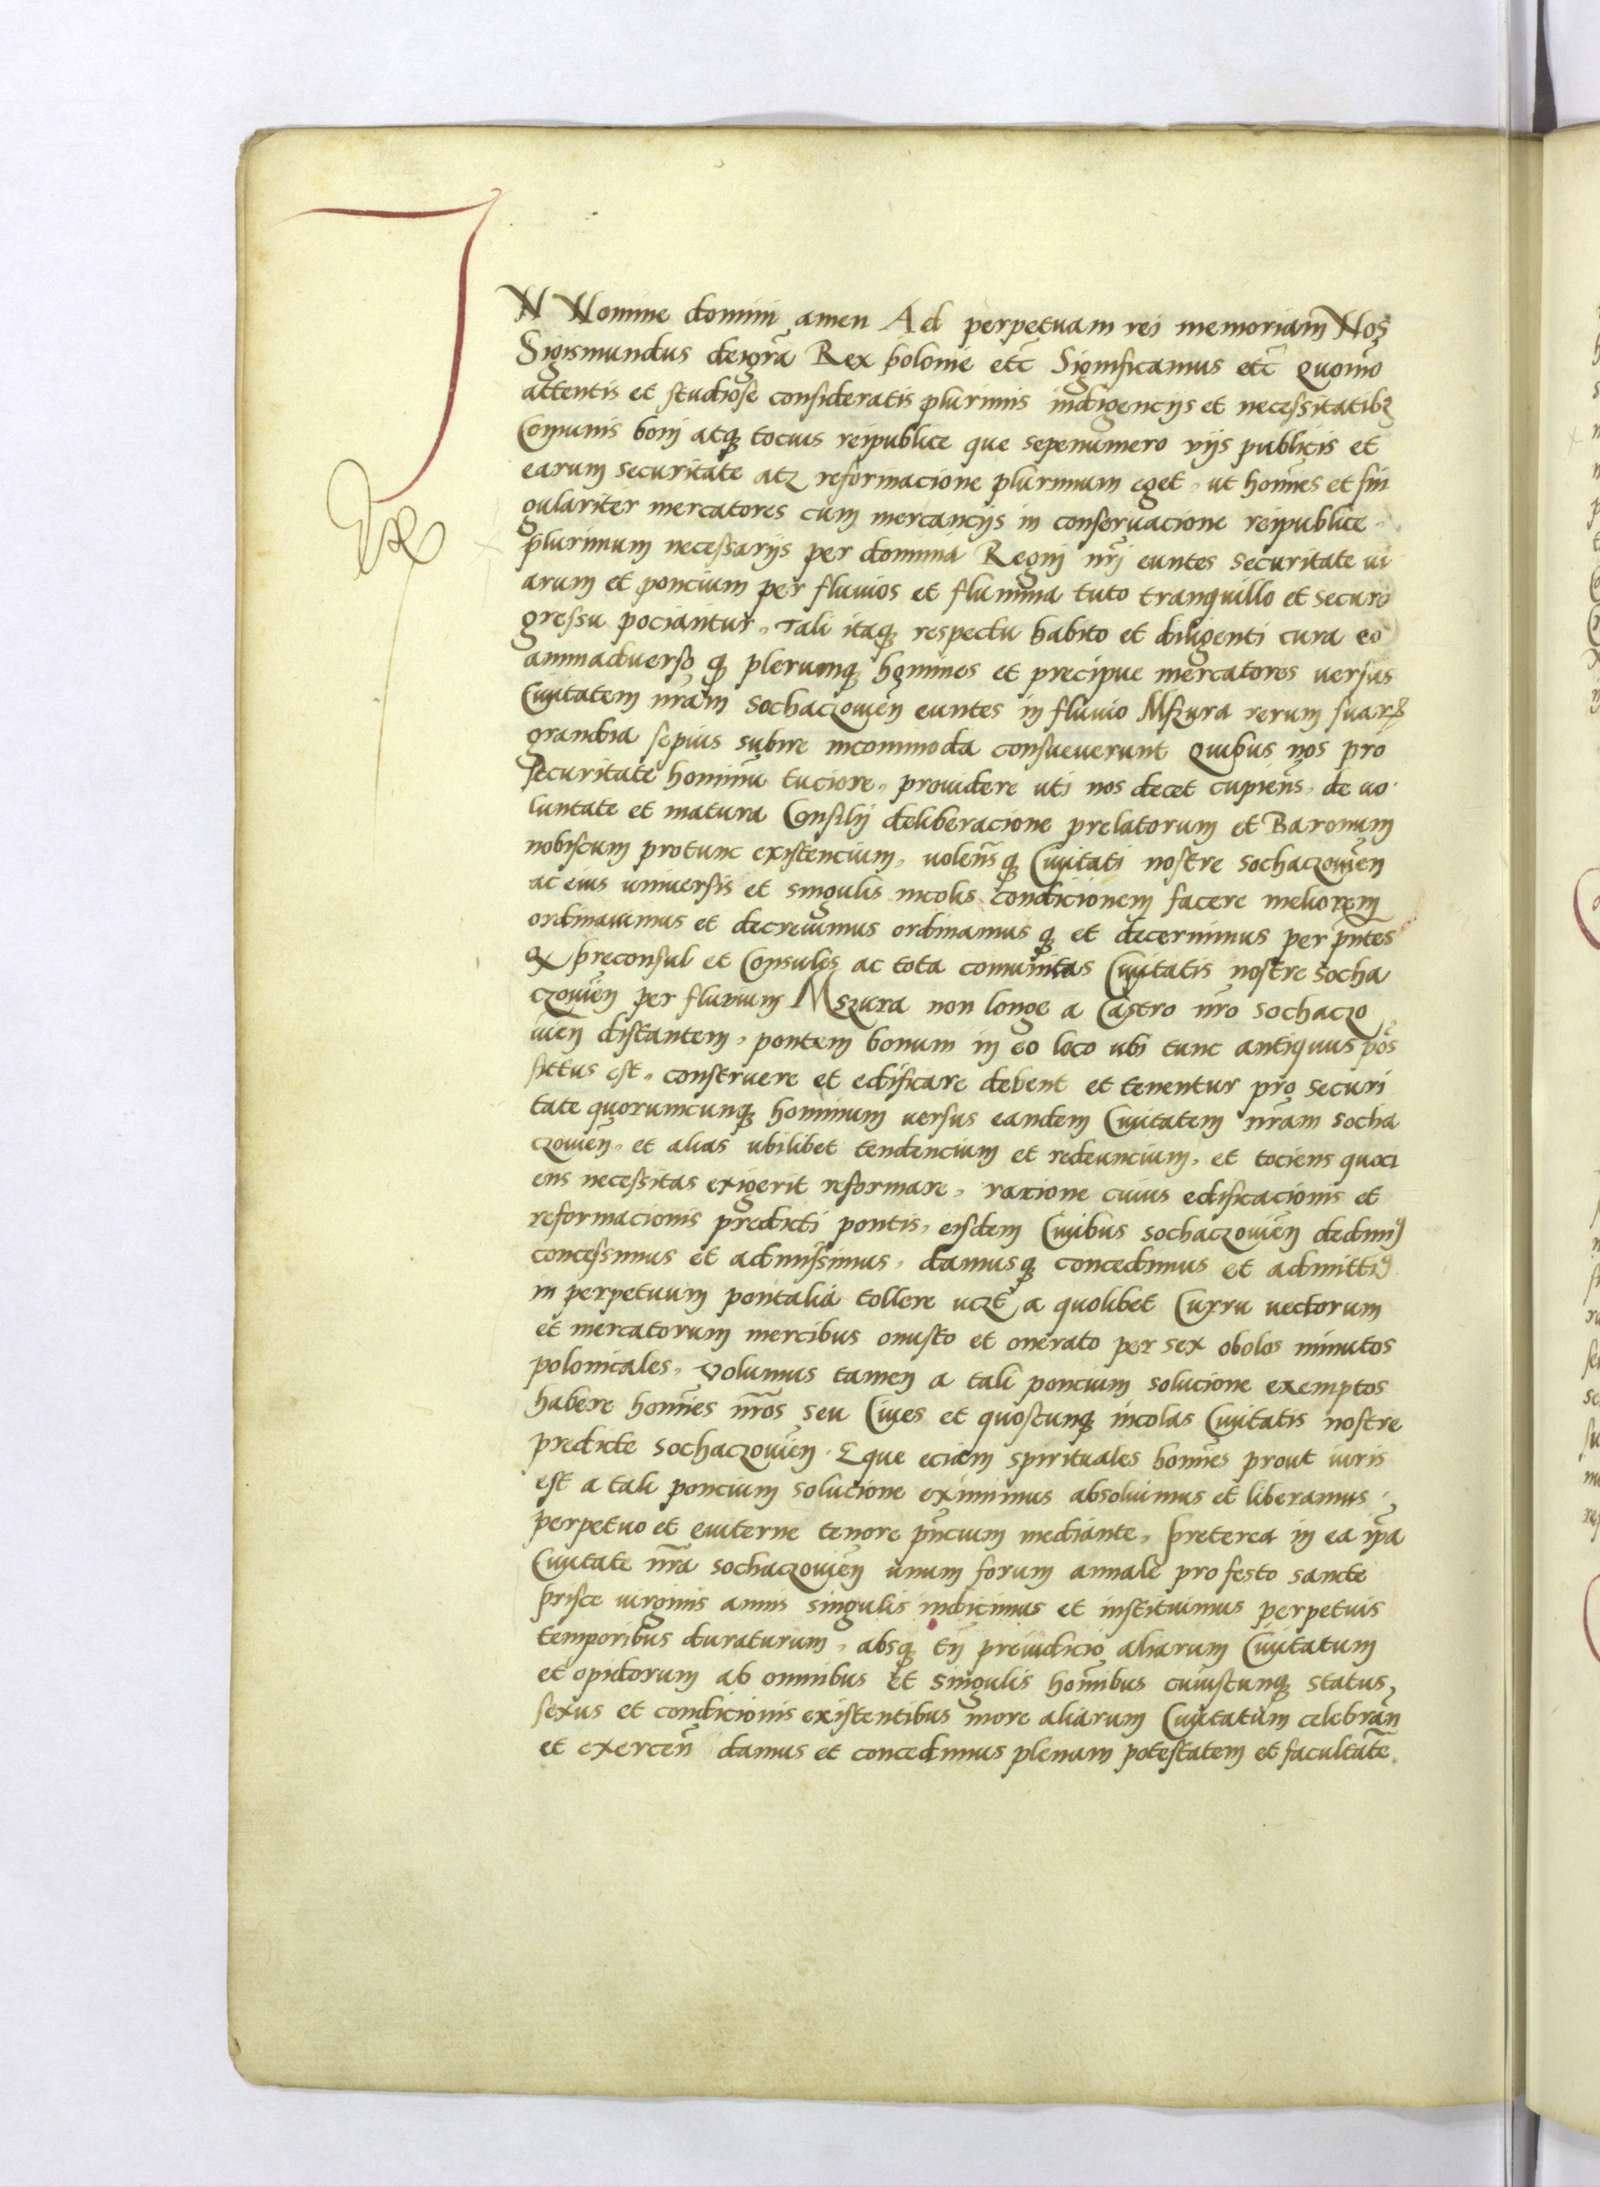 IN Nomine domini amen Ad perpetuam rei memoriam Nos
Sigismundus dei gra̅ Rex polonie etc̅ Significamus etc̅ quomo̅
attentis et studiose consideratis plurimis indigencijs et necessitatibꝫ
Co̅munis boni atqꝫ tocius reipublice que sepenumero vijs publicis et
earum securitate atqꝫ reformacione plurimum eget, ut homi̅es et sin
gulariter mercatores cum mercancijs in conseruacione reipublice
plurimum necessarijs per dominia Regni nr̅i euntes securitate ui
arum et poncium per fluuios et flumina tuto tranquillo et securo
gressu pociantur, Tali itaqꝫ respectu habito et diligenti cura eo
animaduerso qꝫ plerumqꝫ homines et precipue mercatores versus
Ciuitatem nr̅am Sochaczouien̅ euntes in fluuio Mszura rerum suarꝝ
grandia sepius subire incommoda consueuerunt Quibus nos pro
securitate hominu̅ tuciore, prouidere uti nos decet cupien̅s, de uo
luntate et matura Consilij deliberacione prelatorum et Baronum
nobiscum protunc existencium, uolen̅sqꝫ Ciuitati nostre Sochaczouien̅
ac eius uniuersis et singulis incolis condicionem facere meliorem
ordinauimus et decreuimus ordinamusqꝫ et decernimus per pn̅tes
Qꝫ preconsul et Consules ac tota comunitas Ciuitatis nostre Socha
czouien̅ per fluuium Mszura non longe a Castro nr̅o Sochaczo
uien̅ distantem, pontem bonum in eo loco ubi tunc antiquus pos
situs est, construere et edificare debent et tenentur pro securi
tate quorumcunqꝫ hominum versus eandem Ciuitatem nr̅am Socha
czouien̅, et alias ubilibet tendencium et redeuncium, et tociens quoci
ens necessitas exigerit reformare, racione cuius edificacionis et
reformacionis predicti pontis, eisdem Ciuibus Sochaczouien̅ dedimꝰ
concessimus et admissimus, damusqꝫ concedimus et admittimꝰ
in perpetuum pontalia tollere uczt̅ a quolibet Curru uectorum
et mercatorum mercibus onusto et onerato per sex obolos minutos
polonicales, Volumus tamen a tali poncium solucione exemptos
habere homi̅es nr̅os seu Ciues et quoscunqꝫ incolas Ciuitatis nostre
predicte Sochaczouien̅. Eque eciam spirituales homi̅es prout iuris
est a tali poncium solucione eximimus absoluimus et liberamus
perpetuo et euiterne tenore pn̅cium mediante, preterea in ea ip̅a
Ciuitate nr̅a Sochaczouien̅ unum forum annale pro festo sancte
prisce uirginis annis singulis indicimus et instituimus perpetuis
temporibus duraturum, absqꝫ tn̅ preiudicio aliarum Ciuitatum
et opidorum ab omnibus et singulis homi̅ibus cuiuscunqꝫ status,
sexus et condicionis existentibus more aliarum Ciuitatum celebran̅
et exercen̅ damus et concedimus plenam potestatem et facultate̅